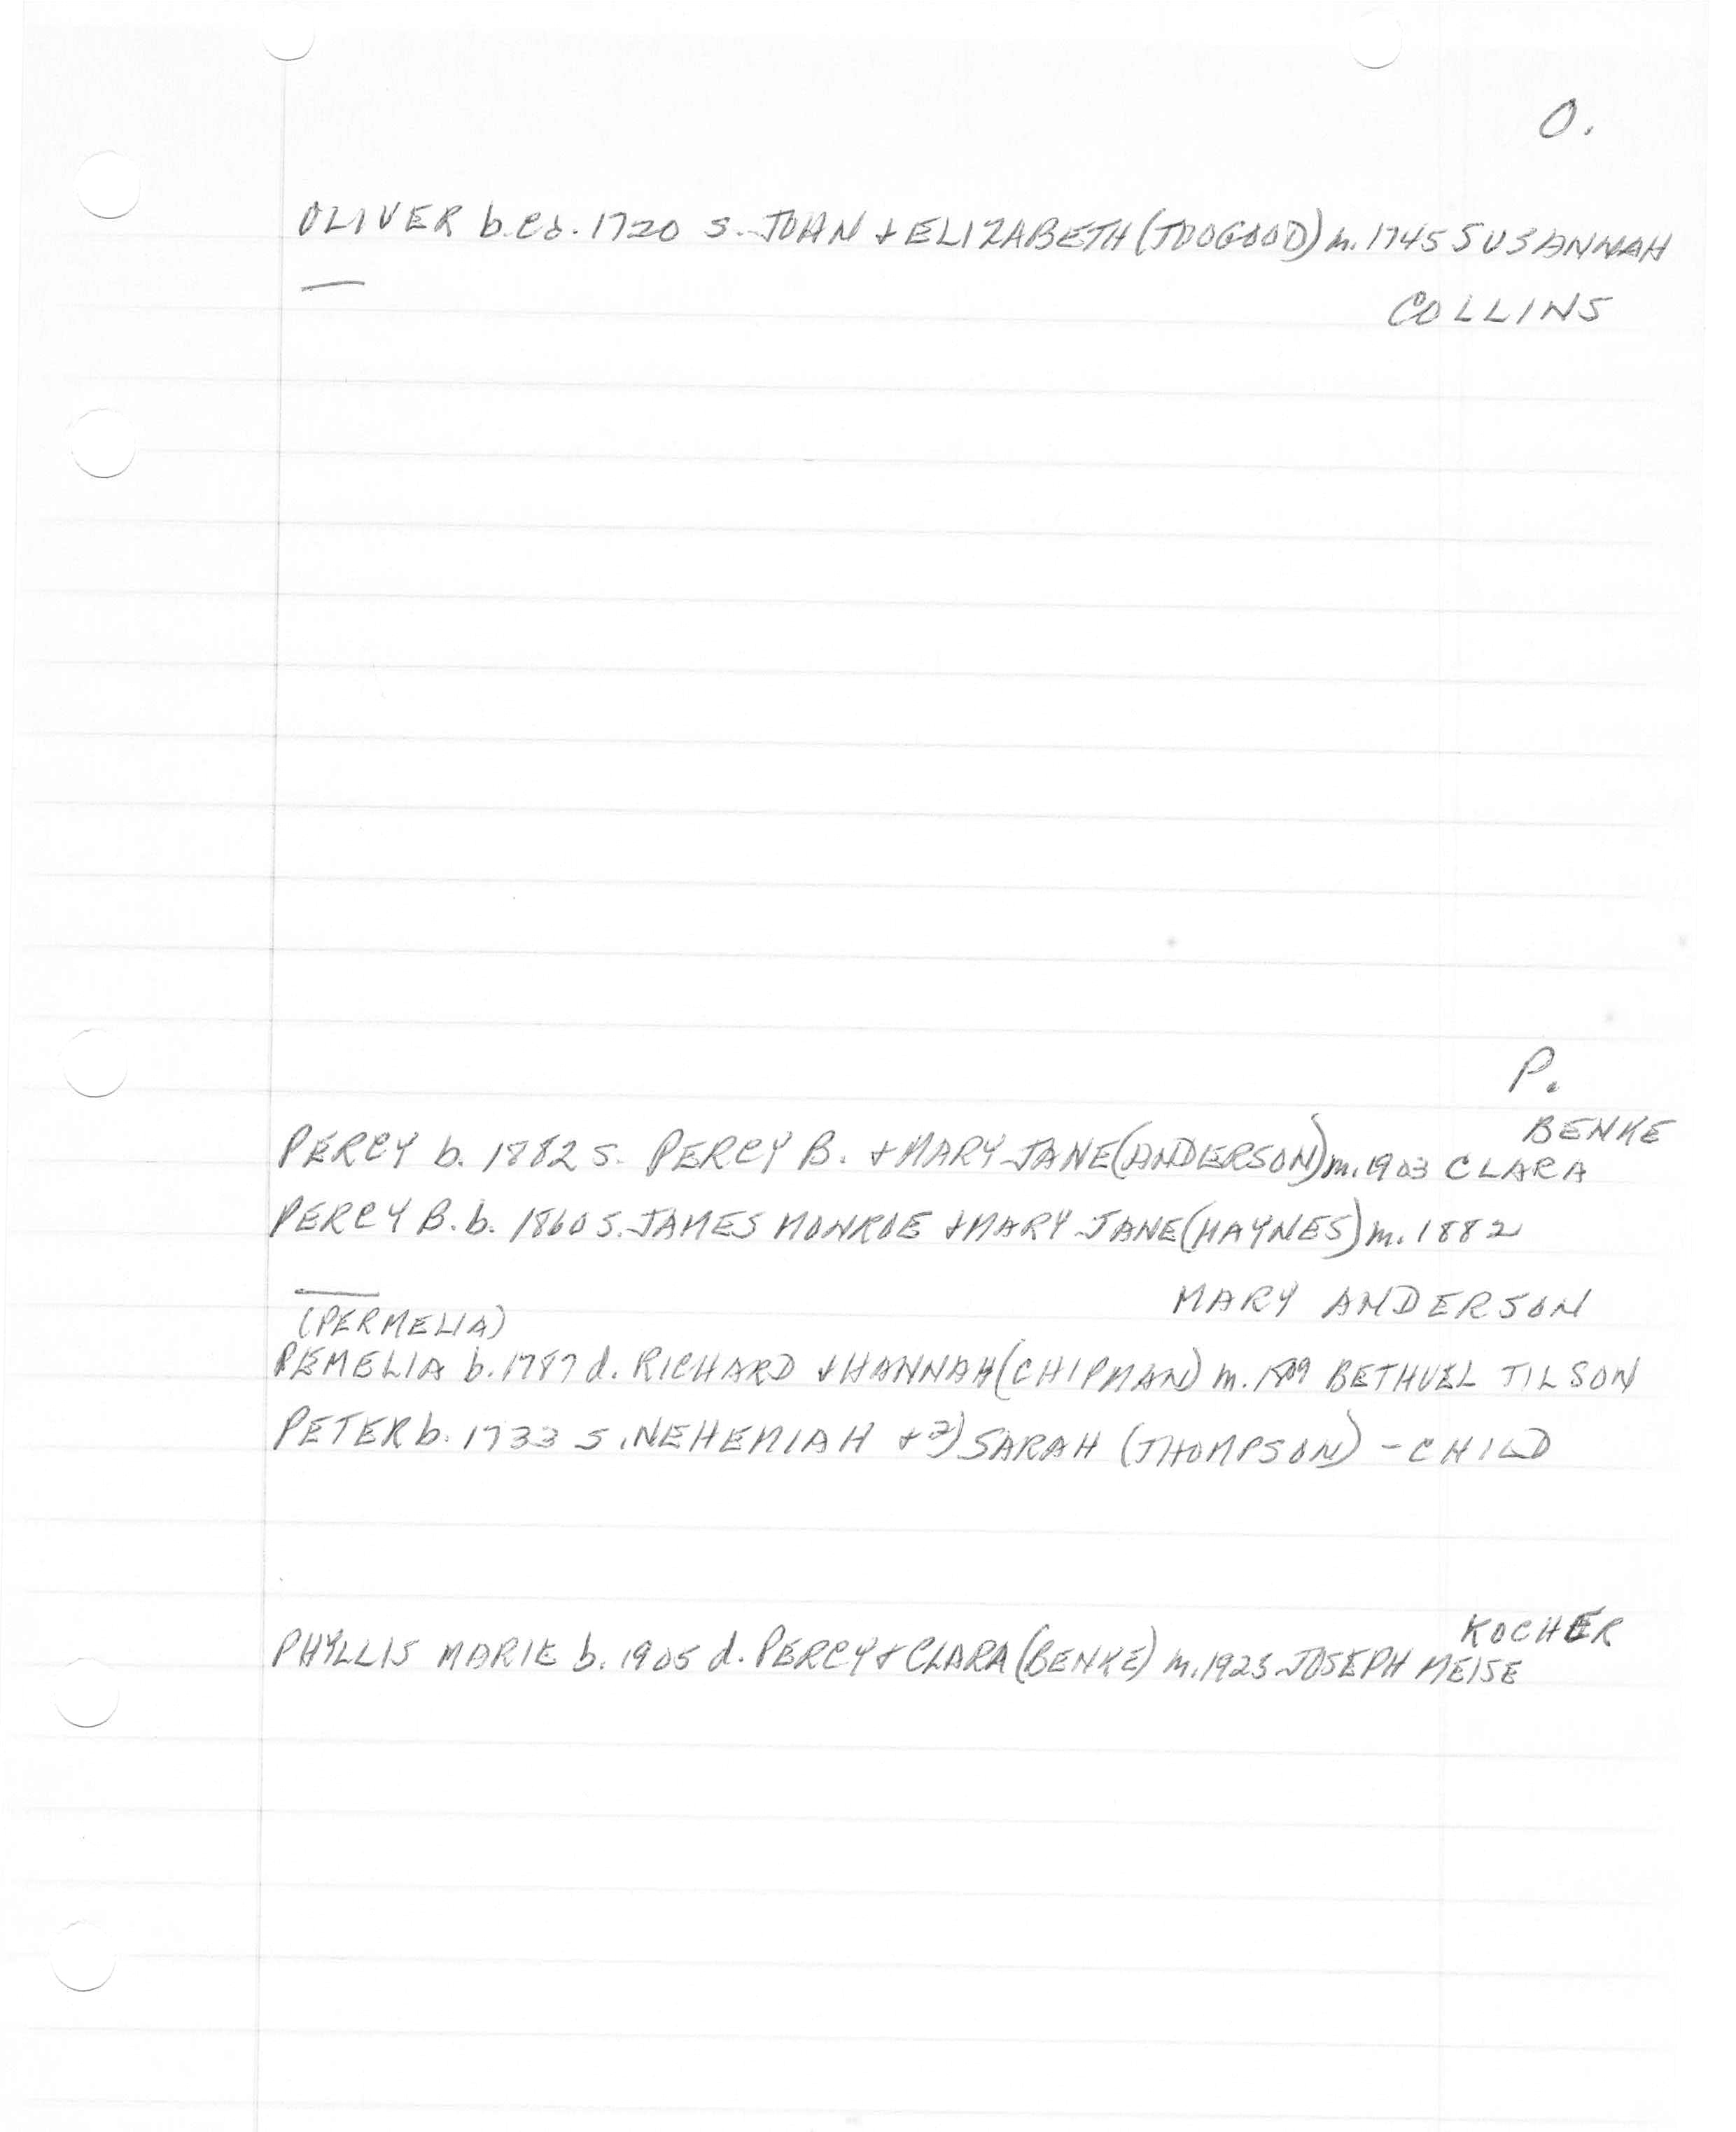 O.
OLIVER b. ca. 1720 s. JOHN + ELIZABETH (TOOGOOD) m. 1745 SUSANNAH
COLLINS
P.
BENKE
PERCY b. 1882 s. PERCY B. + MARY JANE (ANDERSON) m. 1903 CLARA
PERCY B. b. 1860 s. JAMES MONROE + MARY JANE (HAYNES) m. 1882
MARY ANDERSON
(PERMELIA)
PEMELIA b. 1787 d. RICHARD + HANNAH (CHIPMAN) m. BETHUEL TILSON
PETER b. 1733 s. NEHEMIAH + 2) SARAH (THOMPSON) - CHILD
KOCHER
PHYLLIS MARIE b. 1905 d. PERCY + CLARA (BENKE) m. 1923 JOSEPH MEISE